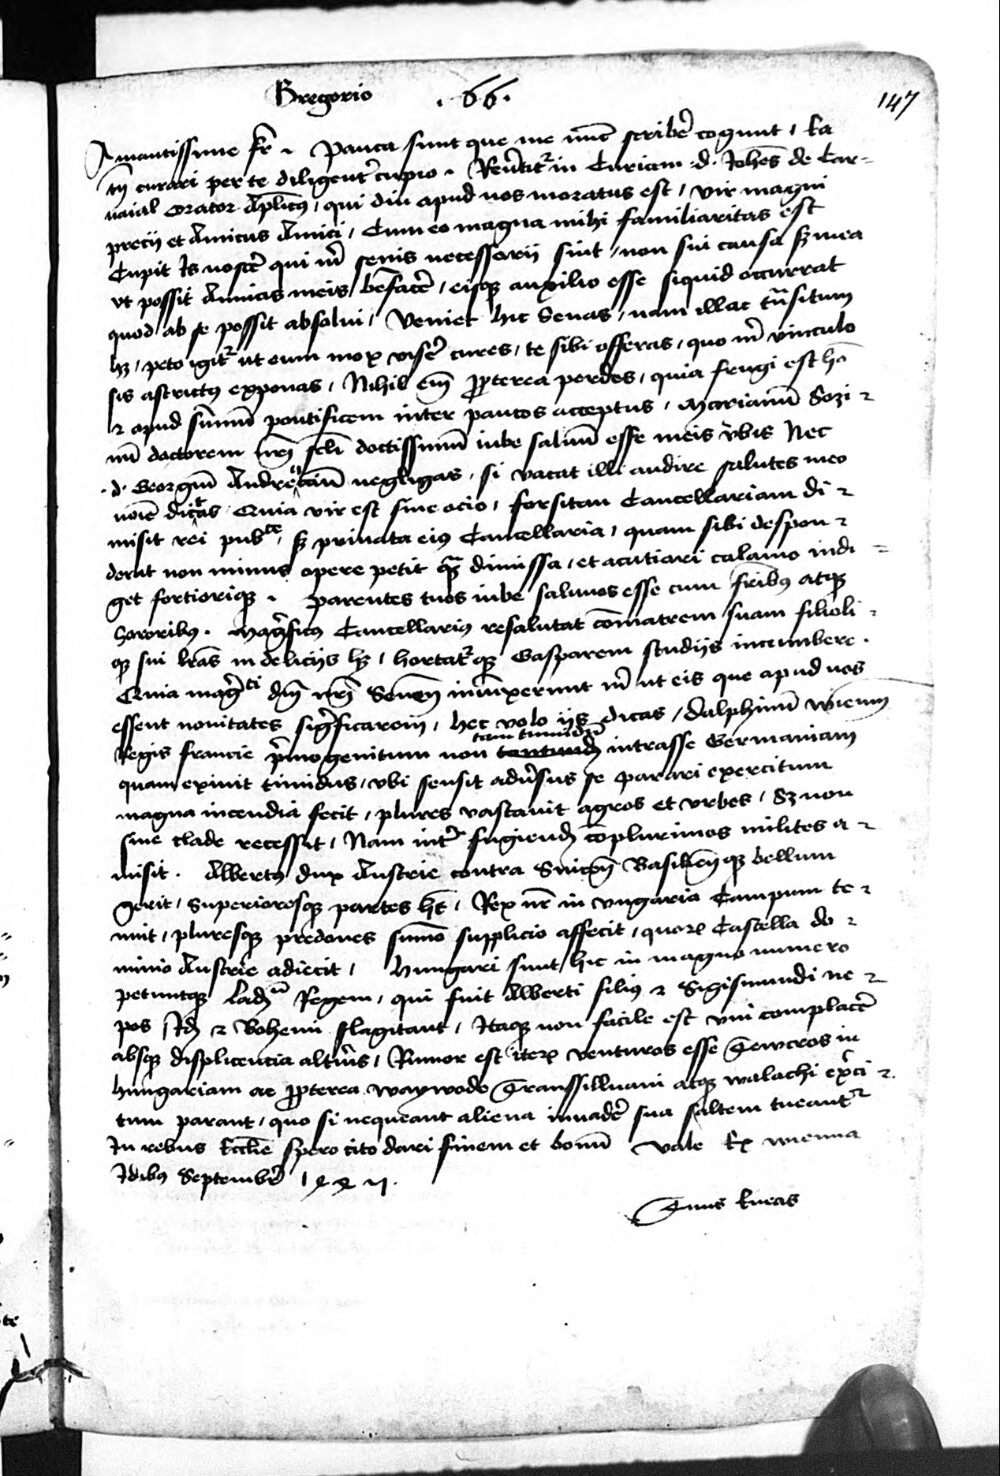 Gregorio .66. 147
Amantissime fr̄ . Pauca sunt que me nūc scribe᷑ cogunt / Ea
tn̄ curari per te diligent᷑ cupio . Reu᷑tit᷑ in Curiam .d. Joh̄es de Car=
uaial Orator Ap̄licus / qui diu apud nos moratus est / vir magni
precii et Amicus Amici / Cum eo magna mihi familiaritas est
Cupit Is nosce᷑ qui m̄ senis necessarii sint / non sui causa sꝫ mea
vt possit Amicis meis b̄eface᷑ / eisqꝫ auxilio esse siquid occurrat
quod ab se possit absolui / Veniet hic Senas / nam illac trāsitum
hꝫ / peto igit᷑ ut eum mox vise᷑ cures / te sibi offeras / quo m̄ vinculo
sis astrictus exponas / Nihil em̄ ꝓpterea perdes / quia frugi est hō
et apud sūmū pontificem inter paucos acceptus / Marianū Sozi-
nū doctorem nr̄i sc̄li doctissimū iube saluū esse meis v᷑bis Nec
.d. Georgiū Andreuciū negligas / si vacat illi audire salutes meo
noīe dicas Quia vir est sine ocio / forsitan Cancellariam di-
misit rei pub^ce / sꝫ priuata eius Cancellaria / quam sibi despon-
derat non minus opere petit qua᷑ dimissa / et acutiari calamo indi=
get fortioriqꝫ . Parentes tuos iube saluos esse cum fr̄ibus atqꝫ
Sororibus . Mag᷑ficus Cancellarius resalutat cōmatrem suam filioli-
qꝫ sui lr̄as in deliciis hꝫ / hortat᷑qꝫ Gasparem studiis incumbere .
Quia mag᷑^ci dn̄i nr̄i Senen̄ iniūxerunt m̄ ut eis que apud nos
essent nouitates sig᷑ficarem / hec volo iis dicas / Dalphinū
tam timidū
Regis francie p᷑mogenitum non intrasse Germaniam
quam exiuit timidus / vbi sensit adu᷑sus se parari exercitum
magna incendia fecit / plures vastauit agros et vrbes / Sꝫ non
sine clade recessit / Nam int᷑ fugiendū cōplurimos milites a-
misit . Albertus dux Austrie contra Suicen̄ Basilien̄qꝫ bellum
gerit / Superioresqꝫ partes hēt / Rex nr̄ in vngaria Campum te-
nuit / pluresqꝫ predones sūmo supplicio affecit / quoꝝ Castella do-
minio Austrie adiecit / Hungari sunt hic in magno numero
petuntqꝫ Lad^um Regem / qui fuit Alberti filius et Sigismundi ne-
pos Idē et Bohemi flagitant / Itaqꝫ non facile est vni complace᷑
absqꝫ displicencia alt᷑ius / Rumor est iteꝝ venturos esse Tewcros in
hungariam ac ꝓpterea waywode Transsilluani atqꝫ walachi ex᷑ci-
tum parant / quo si nequeant aliena inuade᷑ sua saltem tueant᷑
In rebus Ecclīe spero cito dari finem et bonū Vale Ex wienna
Idibus Septembr᷑
Tuus Eneas